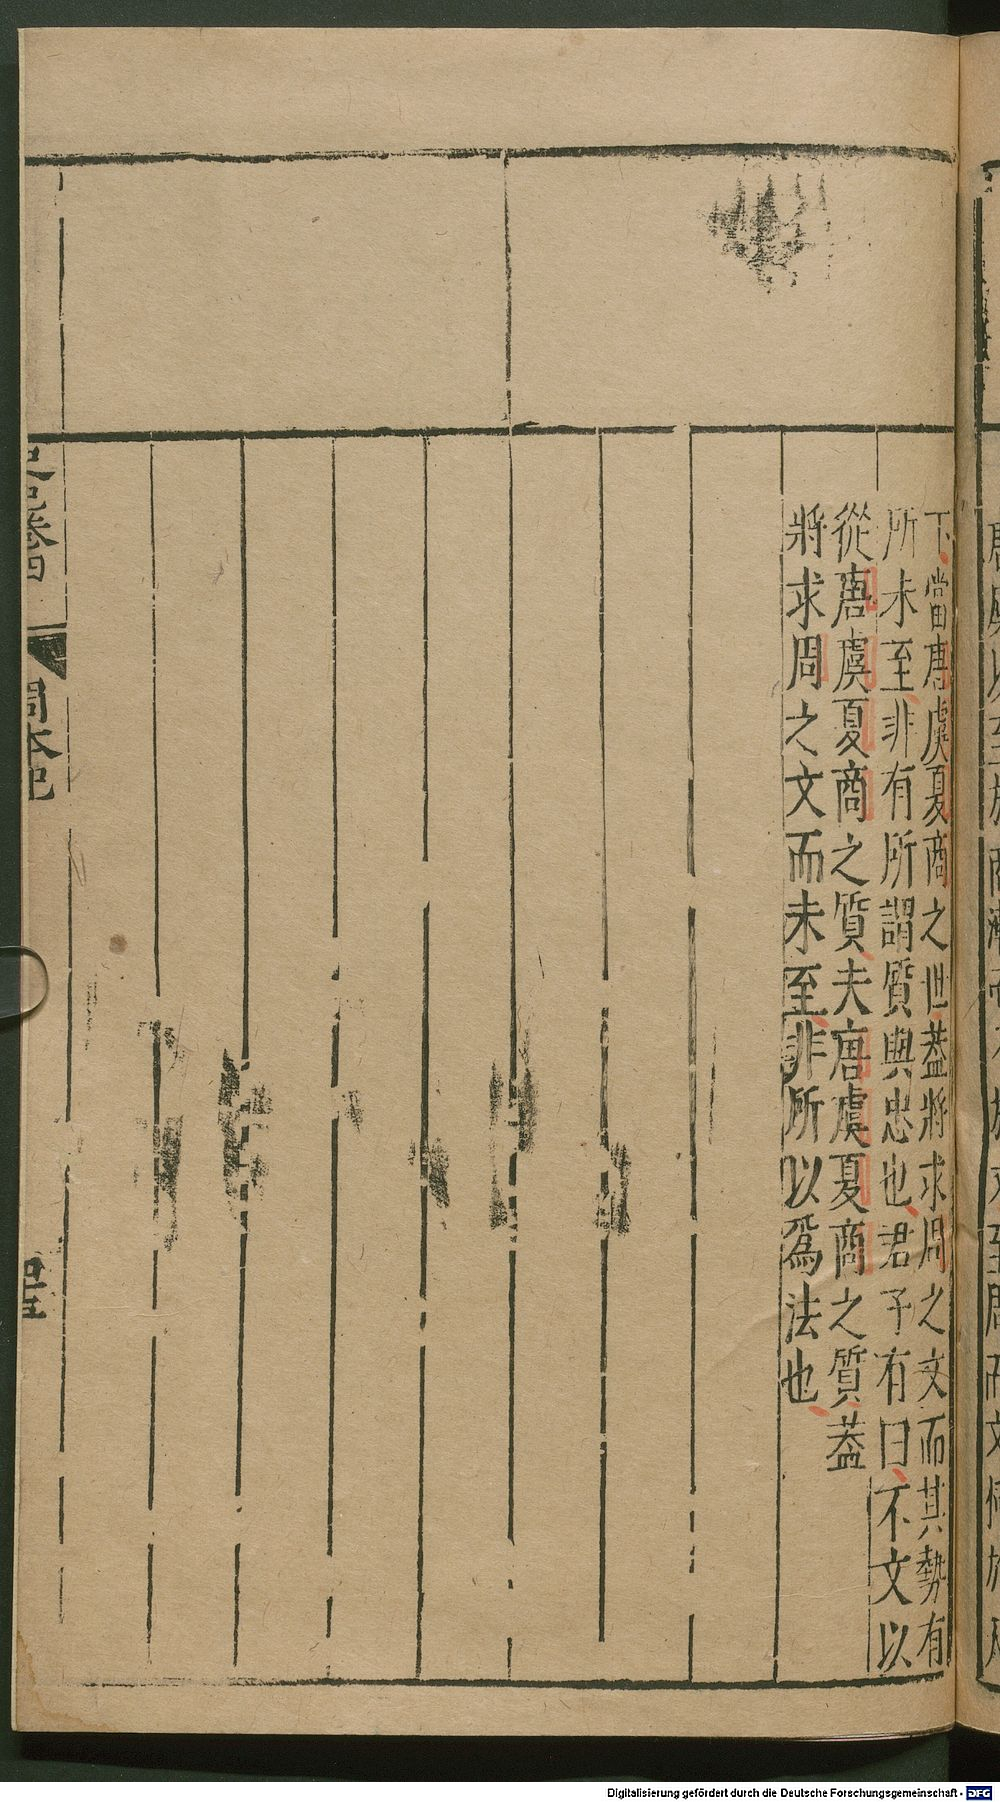 下當唐虞夏商之世蓋將求周之文而其勢有
所未至非有所謂質與忠也君子有曰不文以
從唐虞夏商之質夫唐虞夏商之質蓋
將求周之文而未至非所以爲法也
史記卷四
周本紀
Digitalisierung gefördert durch die Deutsche Forschungsgemeinschaft - DFG